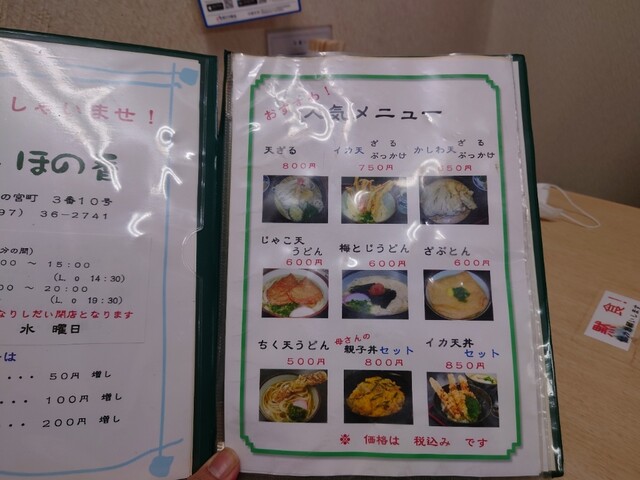 しゃいませ！
ほの香
の宮町 3番10号
97) 36-2741
分の間)
00 ～ 15:00
(L o 14:30)
00 ～ 20:00
(L o 19:30)
なりしだい閉店となります
水 曜日
は
・・・ 50円 増し
・・・ 100円 増し
・・・ 200円 増し
人気メニュー
天ざる
800円
イカ天 ざる ぶっかけ
750円
かしわ天 ざる ぶっかけ
650円
じゃこ天
うどん
600円
梅とじうどん
600円
ざぶとん
600円
ちく天うどん
500円
母さんの
親子丼セット
800円
イカ天丼
セット
850円
※ 価格は 税込み です